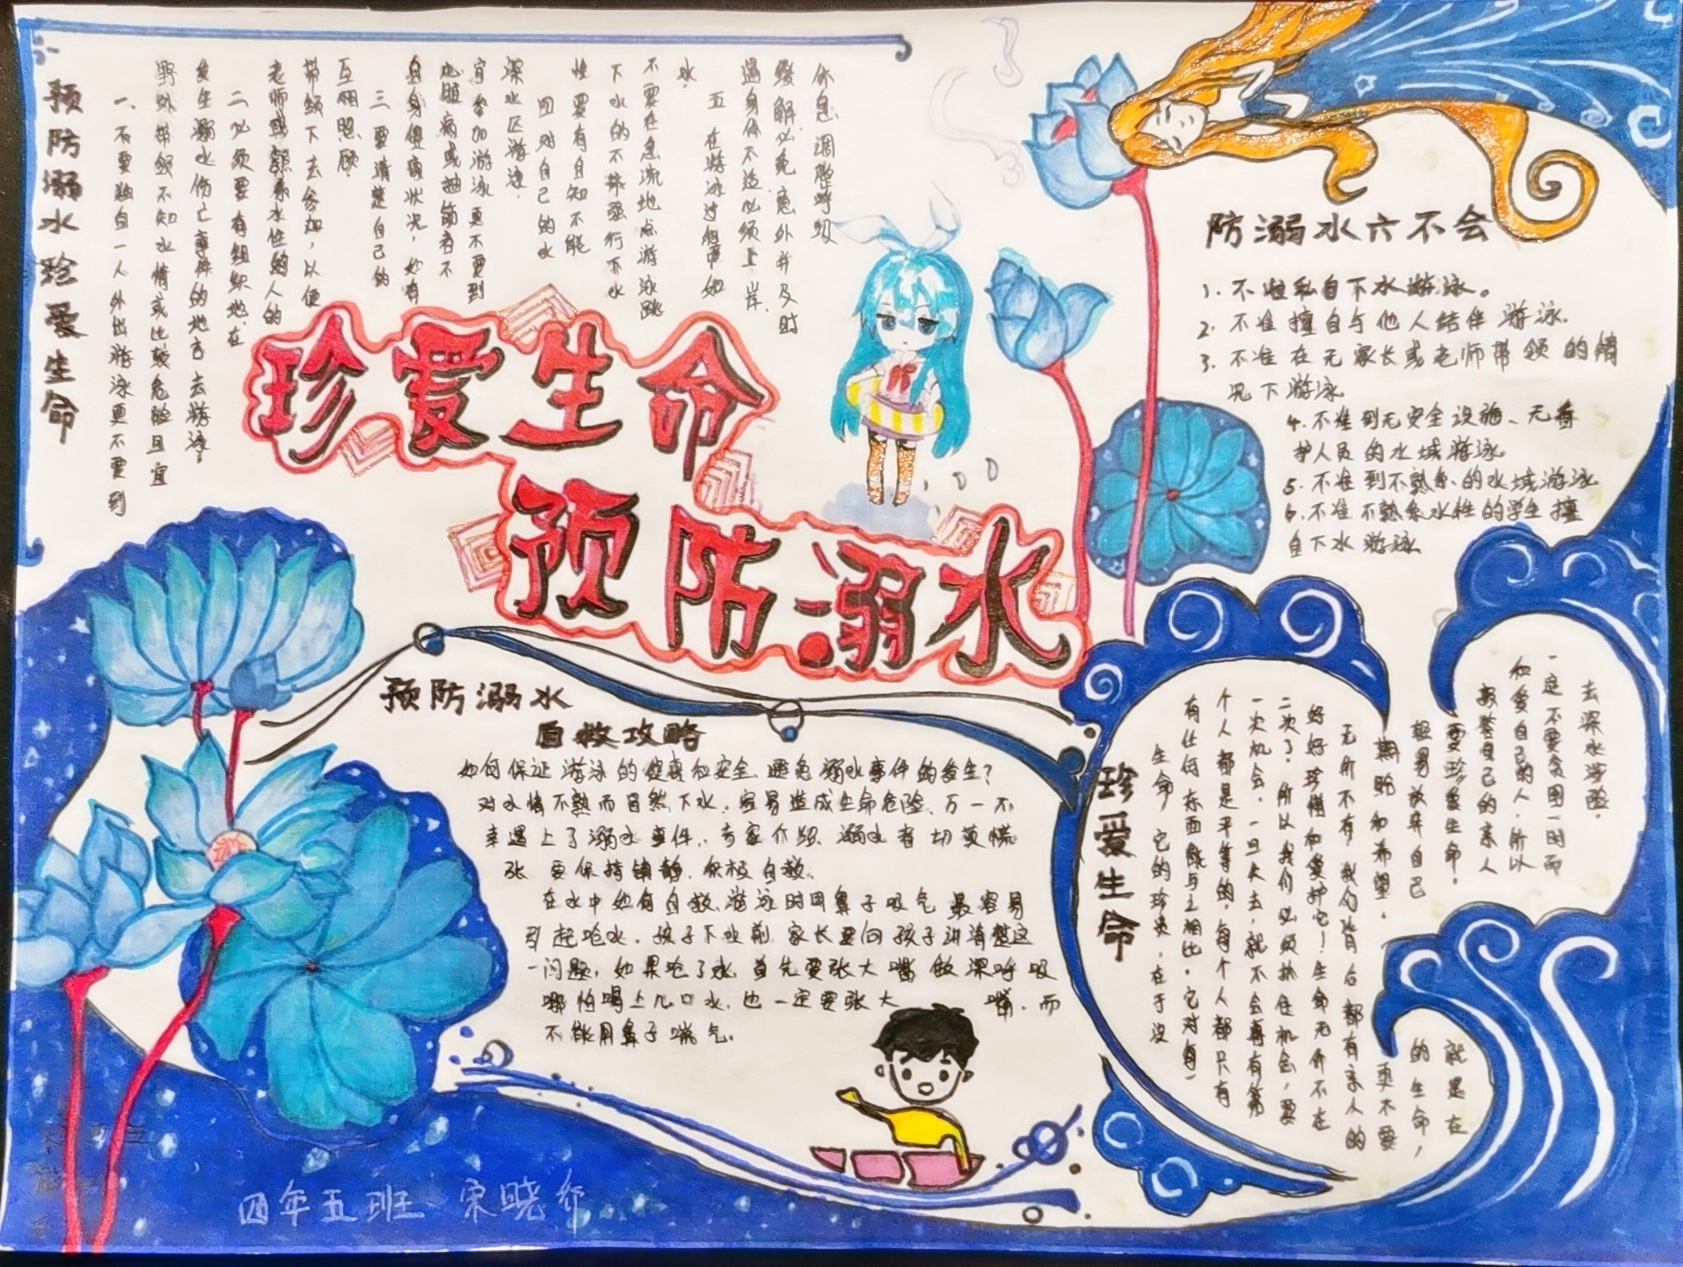 珍爱生命
预防溺水
预防溺水珍爱生命
一、不要独自一人外出游泳更不要到
野外带组织不知水情或比较危险且宜
发生溺水伤亡事件的地方去游泳。
二必须要有组织地在
老师或熟悉水性的人的
带领下去参加，以便
互相照顾
三要清楚自己的
身身健康状况，如有
心脏病或抽筋者不
宜参加游泳更不要到
深水区游泳。
四对自己的水
性要有自知不能
下水的不能强行下水
不要在急流地点游泳跳
水。
五在游泳过程中如
遇身体不适必须上岸
缓解以免意外并及时
休息调整呼吸
防溺水六不会
1.不准私自下水游泳。
2.不准擅自与他人结伴游泳.
3.不准在无家长或老师带领的情
况下游泳
4.不准到无安全设施、无救
护人员的水域游泳。
5.不准到不熟悉的水域游泳
6.不准不熟悉水性的学生擅
自下水游泳
预防溺水
自救攻略
如何保证游泳的健康和安全，避免溺水事件的发生？
对水情不熟而自然下水，容易造成生命危险，万一不
幸遇上了溺水事件，专家介绍，溺水者切莫慌
张，要保持镇静，积极自救。
在水中如何自救，游泳时用鼻子吸气最容易
引起呛水，孩子下水前，家长要向孩子讲清楚这
一问题，如果呛了水，首先要张大嘴做深呼吸
哪怕喝上几口水，也一定要张大嘴，而
不能用鼻子喘气。
珍爱生命
生命，它的珍贵，在于没
有任何东西能与之相比。它对每一
个人都是平等的，每个人都只有
一次机会，一旦失去，就不会再有第
二次了，所以我们必须抓住机会，要
好好珍惜和爱护它！生命无所不在
无所不有，我们背后都有亲人的
期盼和希望，更不要
轻易放弃自己的生命，
要珍爱生命，就是在
报答自己的亲人
和爱自己的人，所以
一定不要贪图一时而
去深水涉险。
四年五班 宋晓